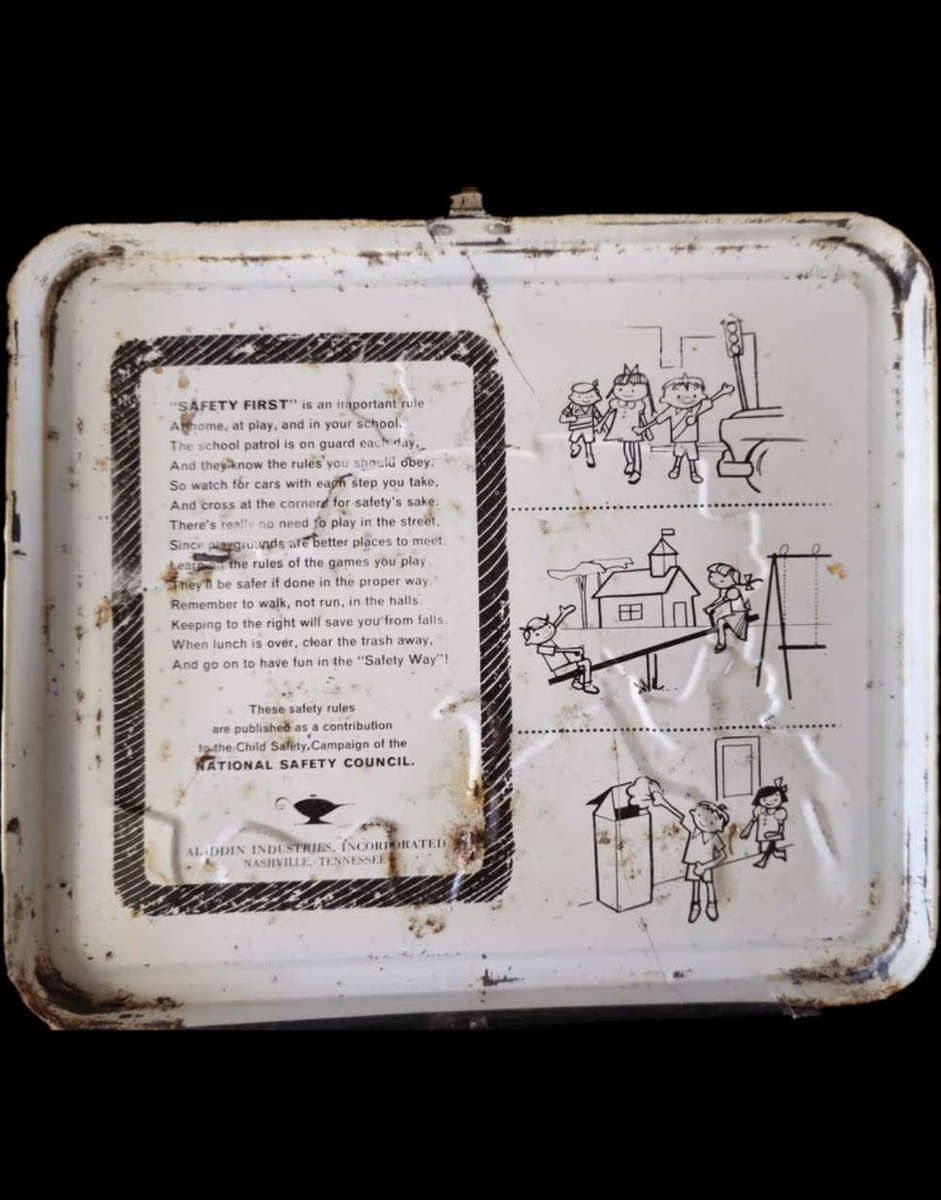 "SAFETY FIRST" is an important rule
At home, at play, and in your school.
The school patrol is on guard each day,
And they know the rules you should obey.
So watch for cars with each step you take,
And cross at the corners for safety's sake.
There's really no need to play in the street,
Since playgrounds are better places to meet.
Learn all the rules of the games you play
They'll be safer if done in the proper way.
Remember to walk, not run, in the halls.
Keeping to the right will save you from falls.
When lunch is over, clear the trash away,
And go on to have fun in the "Safety Way"!
These safety rules
are published as a contribution
to the Child Safety Campaign of the
NATIONAL SAFETY COUNCIL.
ALADDIN INDUSTRIES, INCORPORATED
NASHVILLE, TENNESSEE